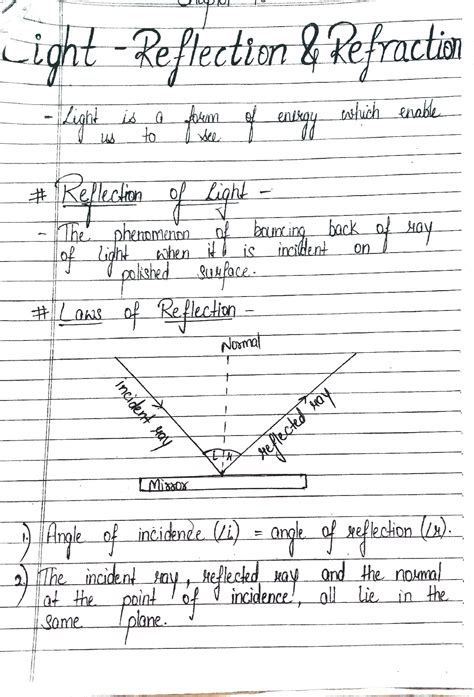 Chapter - 10
Light - Reflection & Refraction
- Light is a form of energy which enable
us to see
# Reflection of Light -
- The phenomenon of bouncing back of ray
of light when it is incident on
polished surface.
# Laws of Reflection -
Normal
Incident ray
reflected ray
i r
Mirror
1) Angle of incidence (∠i) = angle of reflection (∠r).
2) The incident ray, reflected ray and the normal
at the point of incidence, all lie in the
same plane.